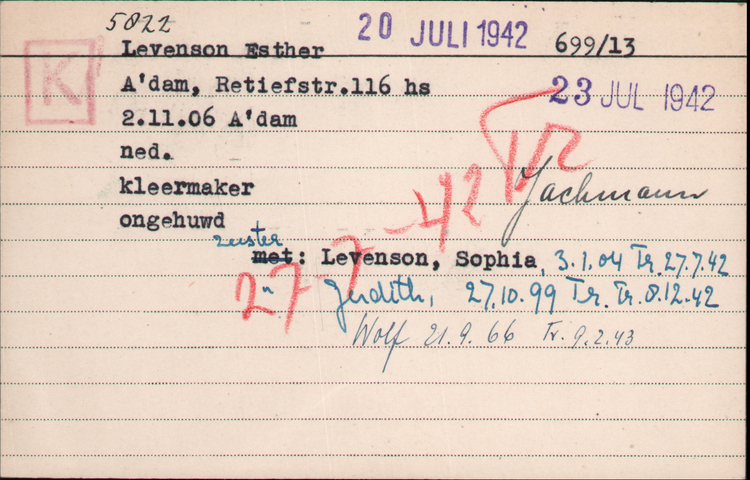 5022
20 JULI 1942
Levenson Esther 699/13
K
A'dam, Retiefstr.116 hs
23 JUL 1942
2.11.06 A'dam
ned.
TR
kleermaker
Jachmann
ongehuwd
27-7-42
zuster
met: Levenson, Sophia, 3.1.04 Tr. 27.7.42
" Judith, 27.10.99 Tr. Tr. 8.12.42
Wolf 21.9.66 Tr. 9.2.43